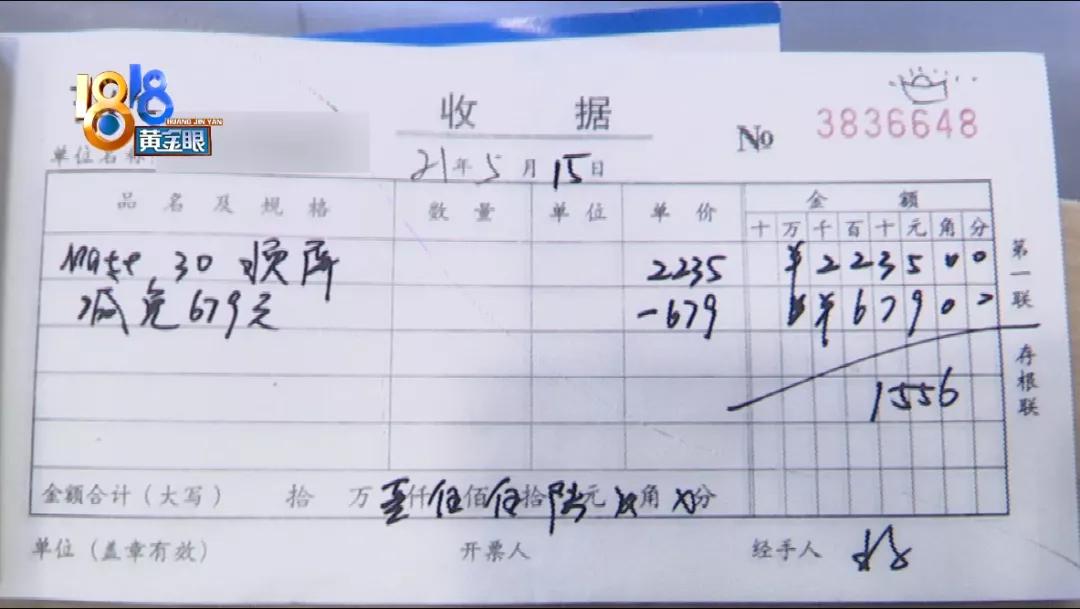 1818
HUANG JIN YAN
黄金眼
收 据
No 3836648
单位名称:
21年5月15日
品名及规格 数量 单位 单价 金额
十万千百十元角分
mate 30 换屏 2235 ¥223500
减免679元 -679 ¥67900
1556
金额合计(大写) 拾 万壹仟伍佰伍拾陆元 角 分
单位(盖章有效) 开票人 经手人
第一联 存根联